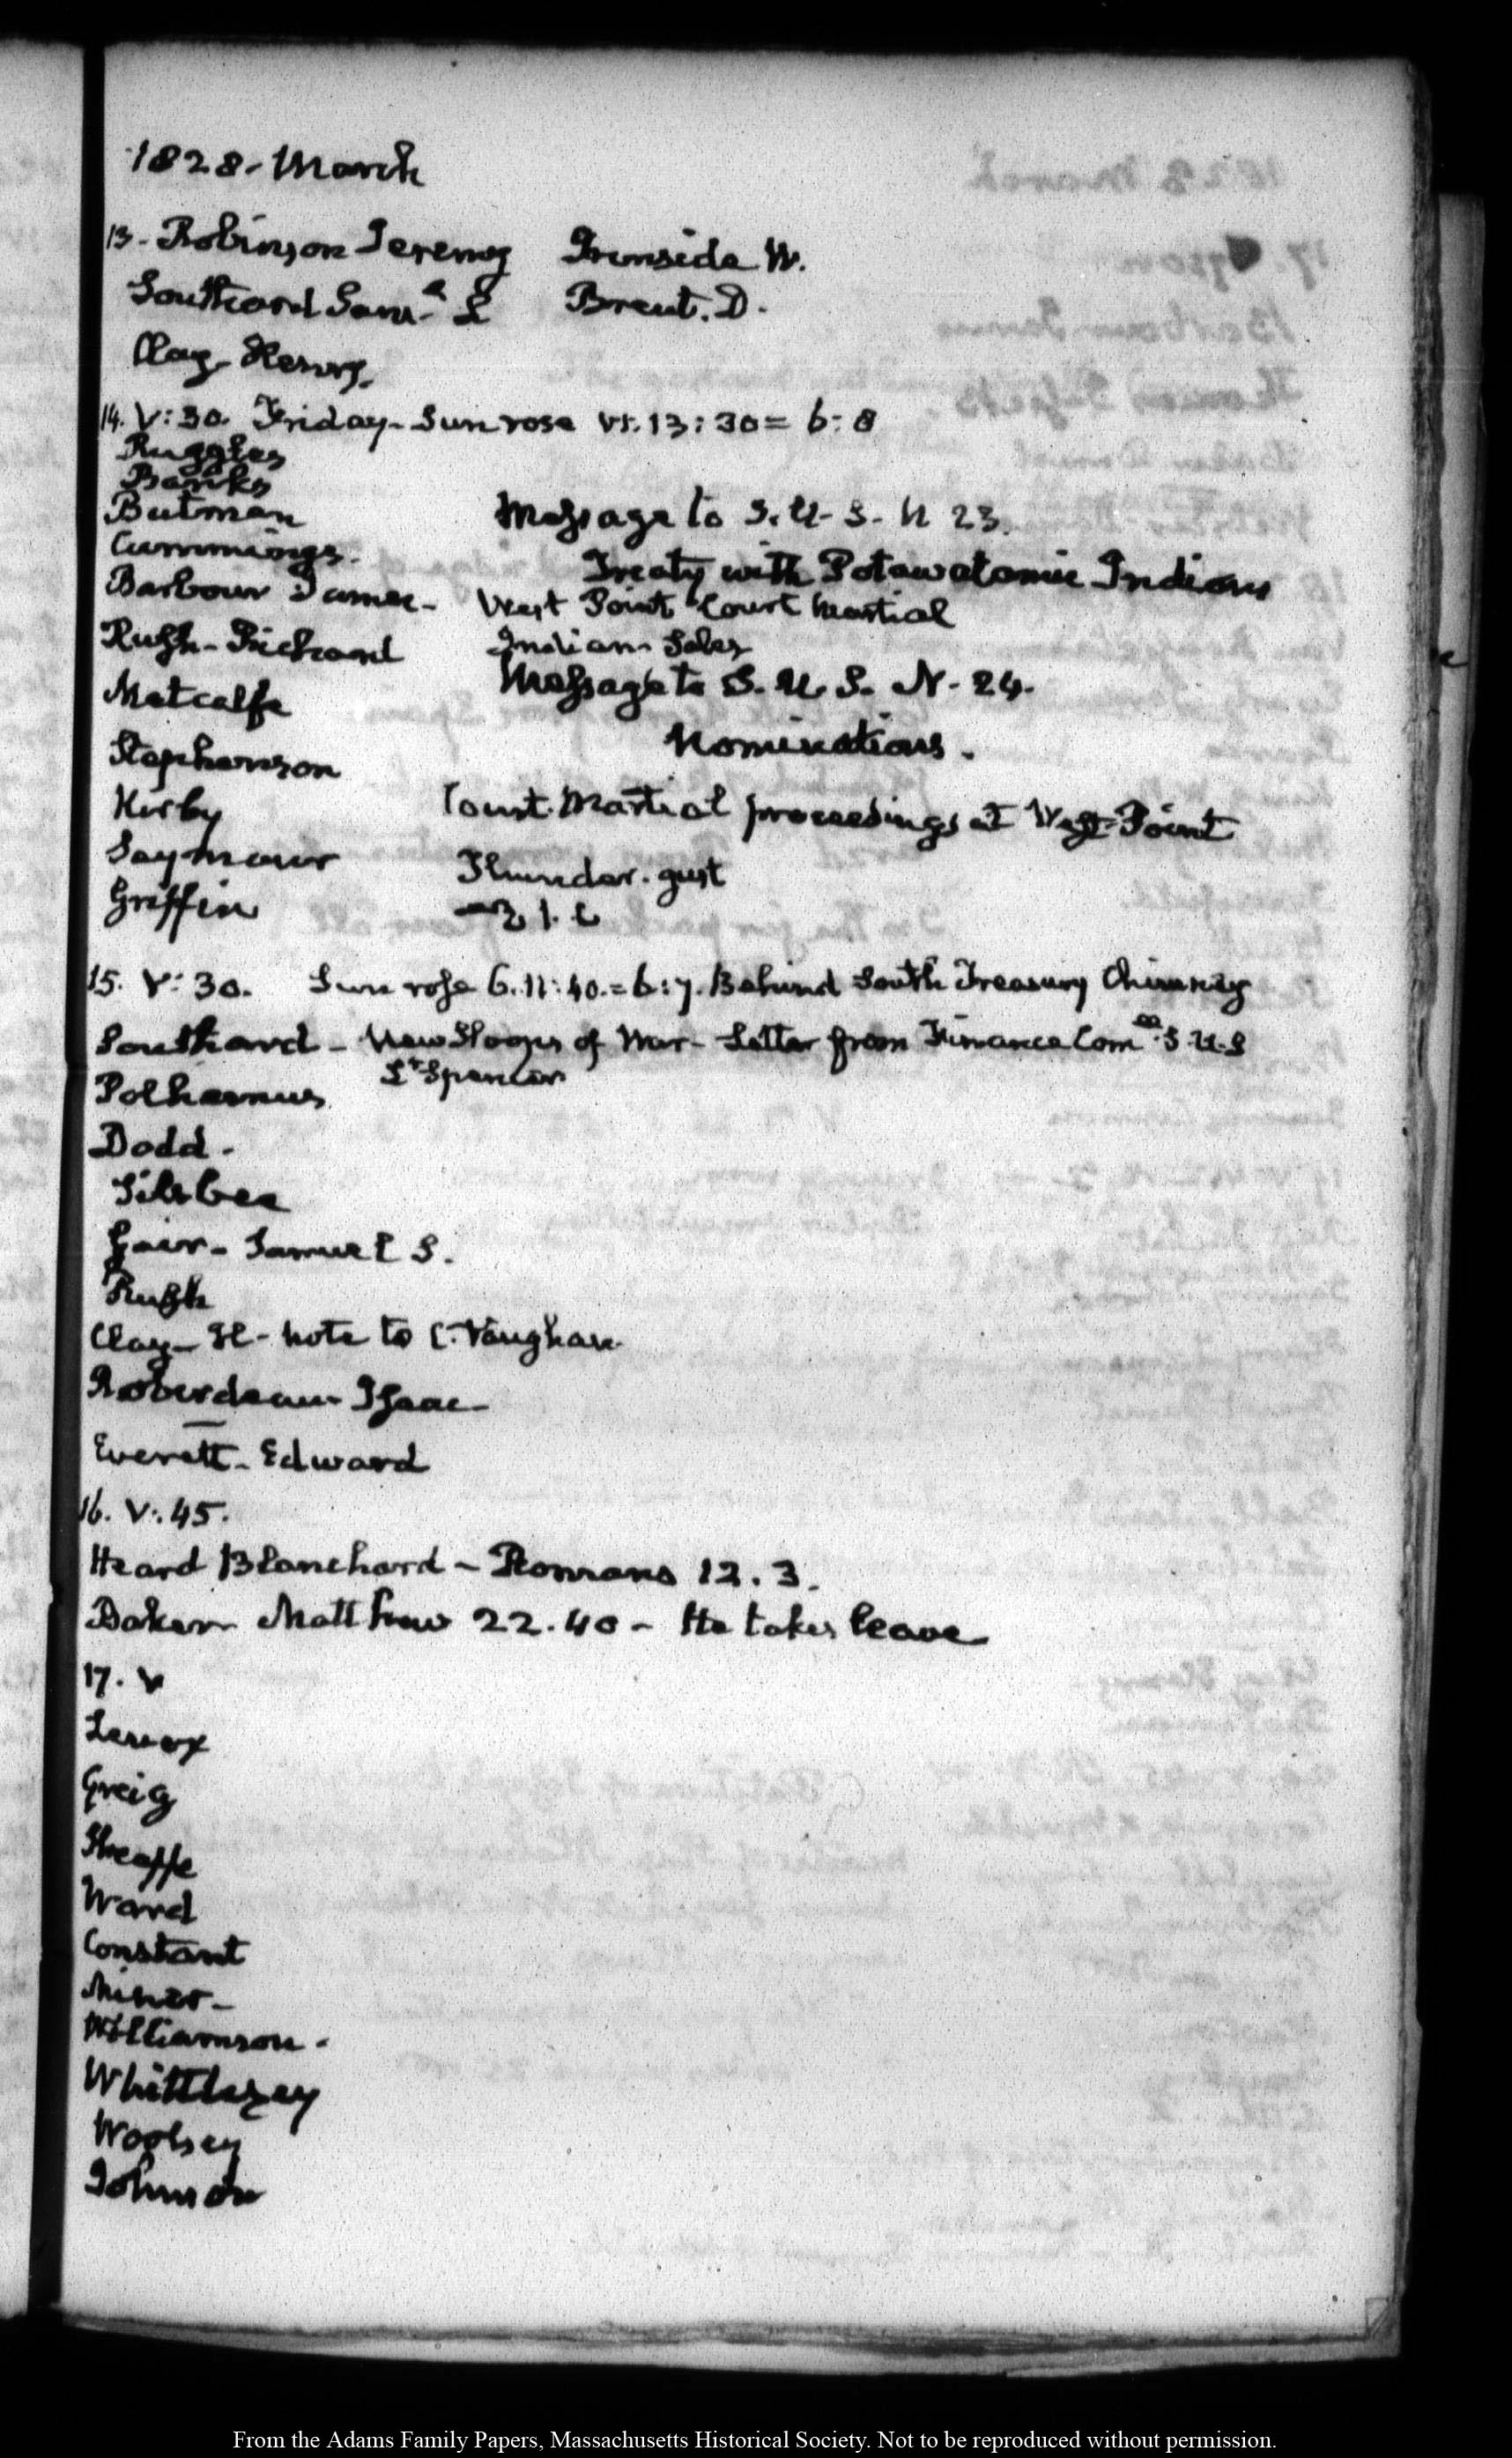 1828- March
13. Robinson Jeremy Ironside W.
Southard Sam.l L Brent. D.
Clay- Henry.
14. V:30. Friday- Sun rose VI.13:30= 6:8
Ruggles
Banks
Butman
Message to S.U.S. N 23.
Cummings.
Treaty with Potawatomie Indians
Barbour James- West Point Court Martial
Rush- Richard Indian
Message to S.U.S. N- 24.
Metcalfe
Nominations.
Stephenson
Kirby Court. Martial proceedings at West-Point
Seymour Thunder. gust
Griffin
15. V:30. Sun rose 6.11:40.=6:7. Behind South Treasury Chimney
Southard- New Sloops of War- Letter from Finance Com.ee S.U.S
Lt Spencer
Polhemus
Dodd-
Silsbee
Gair- Samuel S.
Rush
Clay- H- note to C. Vaughan
Roberdeau- Isaac-
Everett- Edward
16. V:.45.
Heard Blanchard- Romans 12.3.
Baker Matthew 22.40- He takes leave
17. V
Lenox
Greig
Sheaffe
Ward
Constant
Miner-
Williamson-
Whittlesey
Woolsey
Johnson
From the Adams Family Papers, Massachusetts Historical Society. Not to be reproduced without permission.